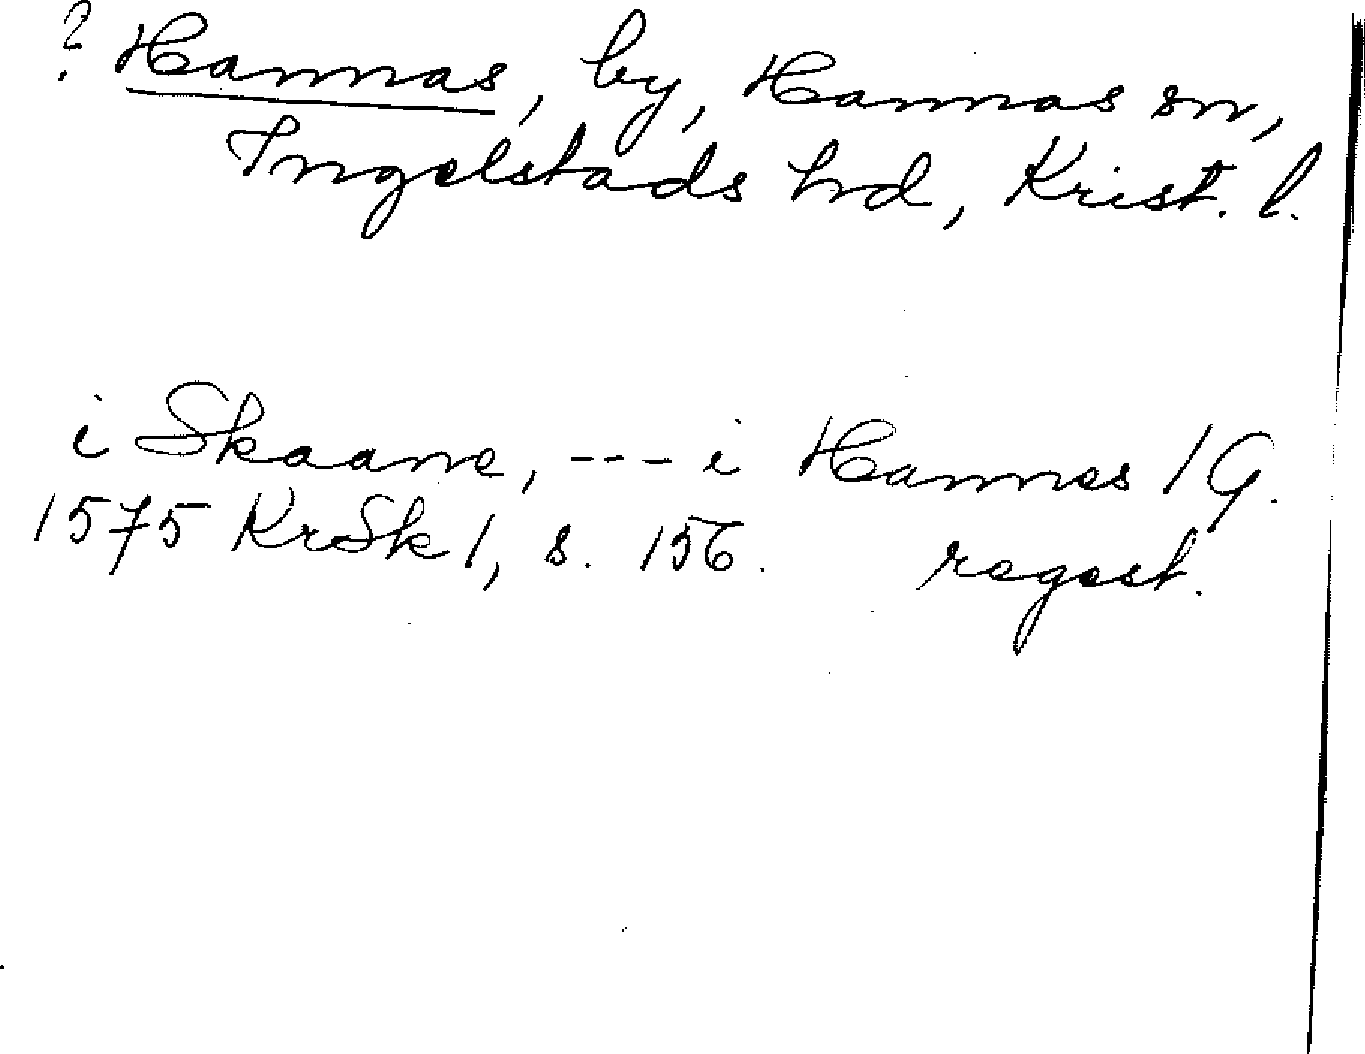 ? Hannas, by, Hannas sn,
Ingelstads hd, Krist. l.
i Skaane, --- i Hannes 19.
1575 KrSk 1, s. 156. regest.